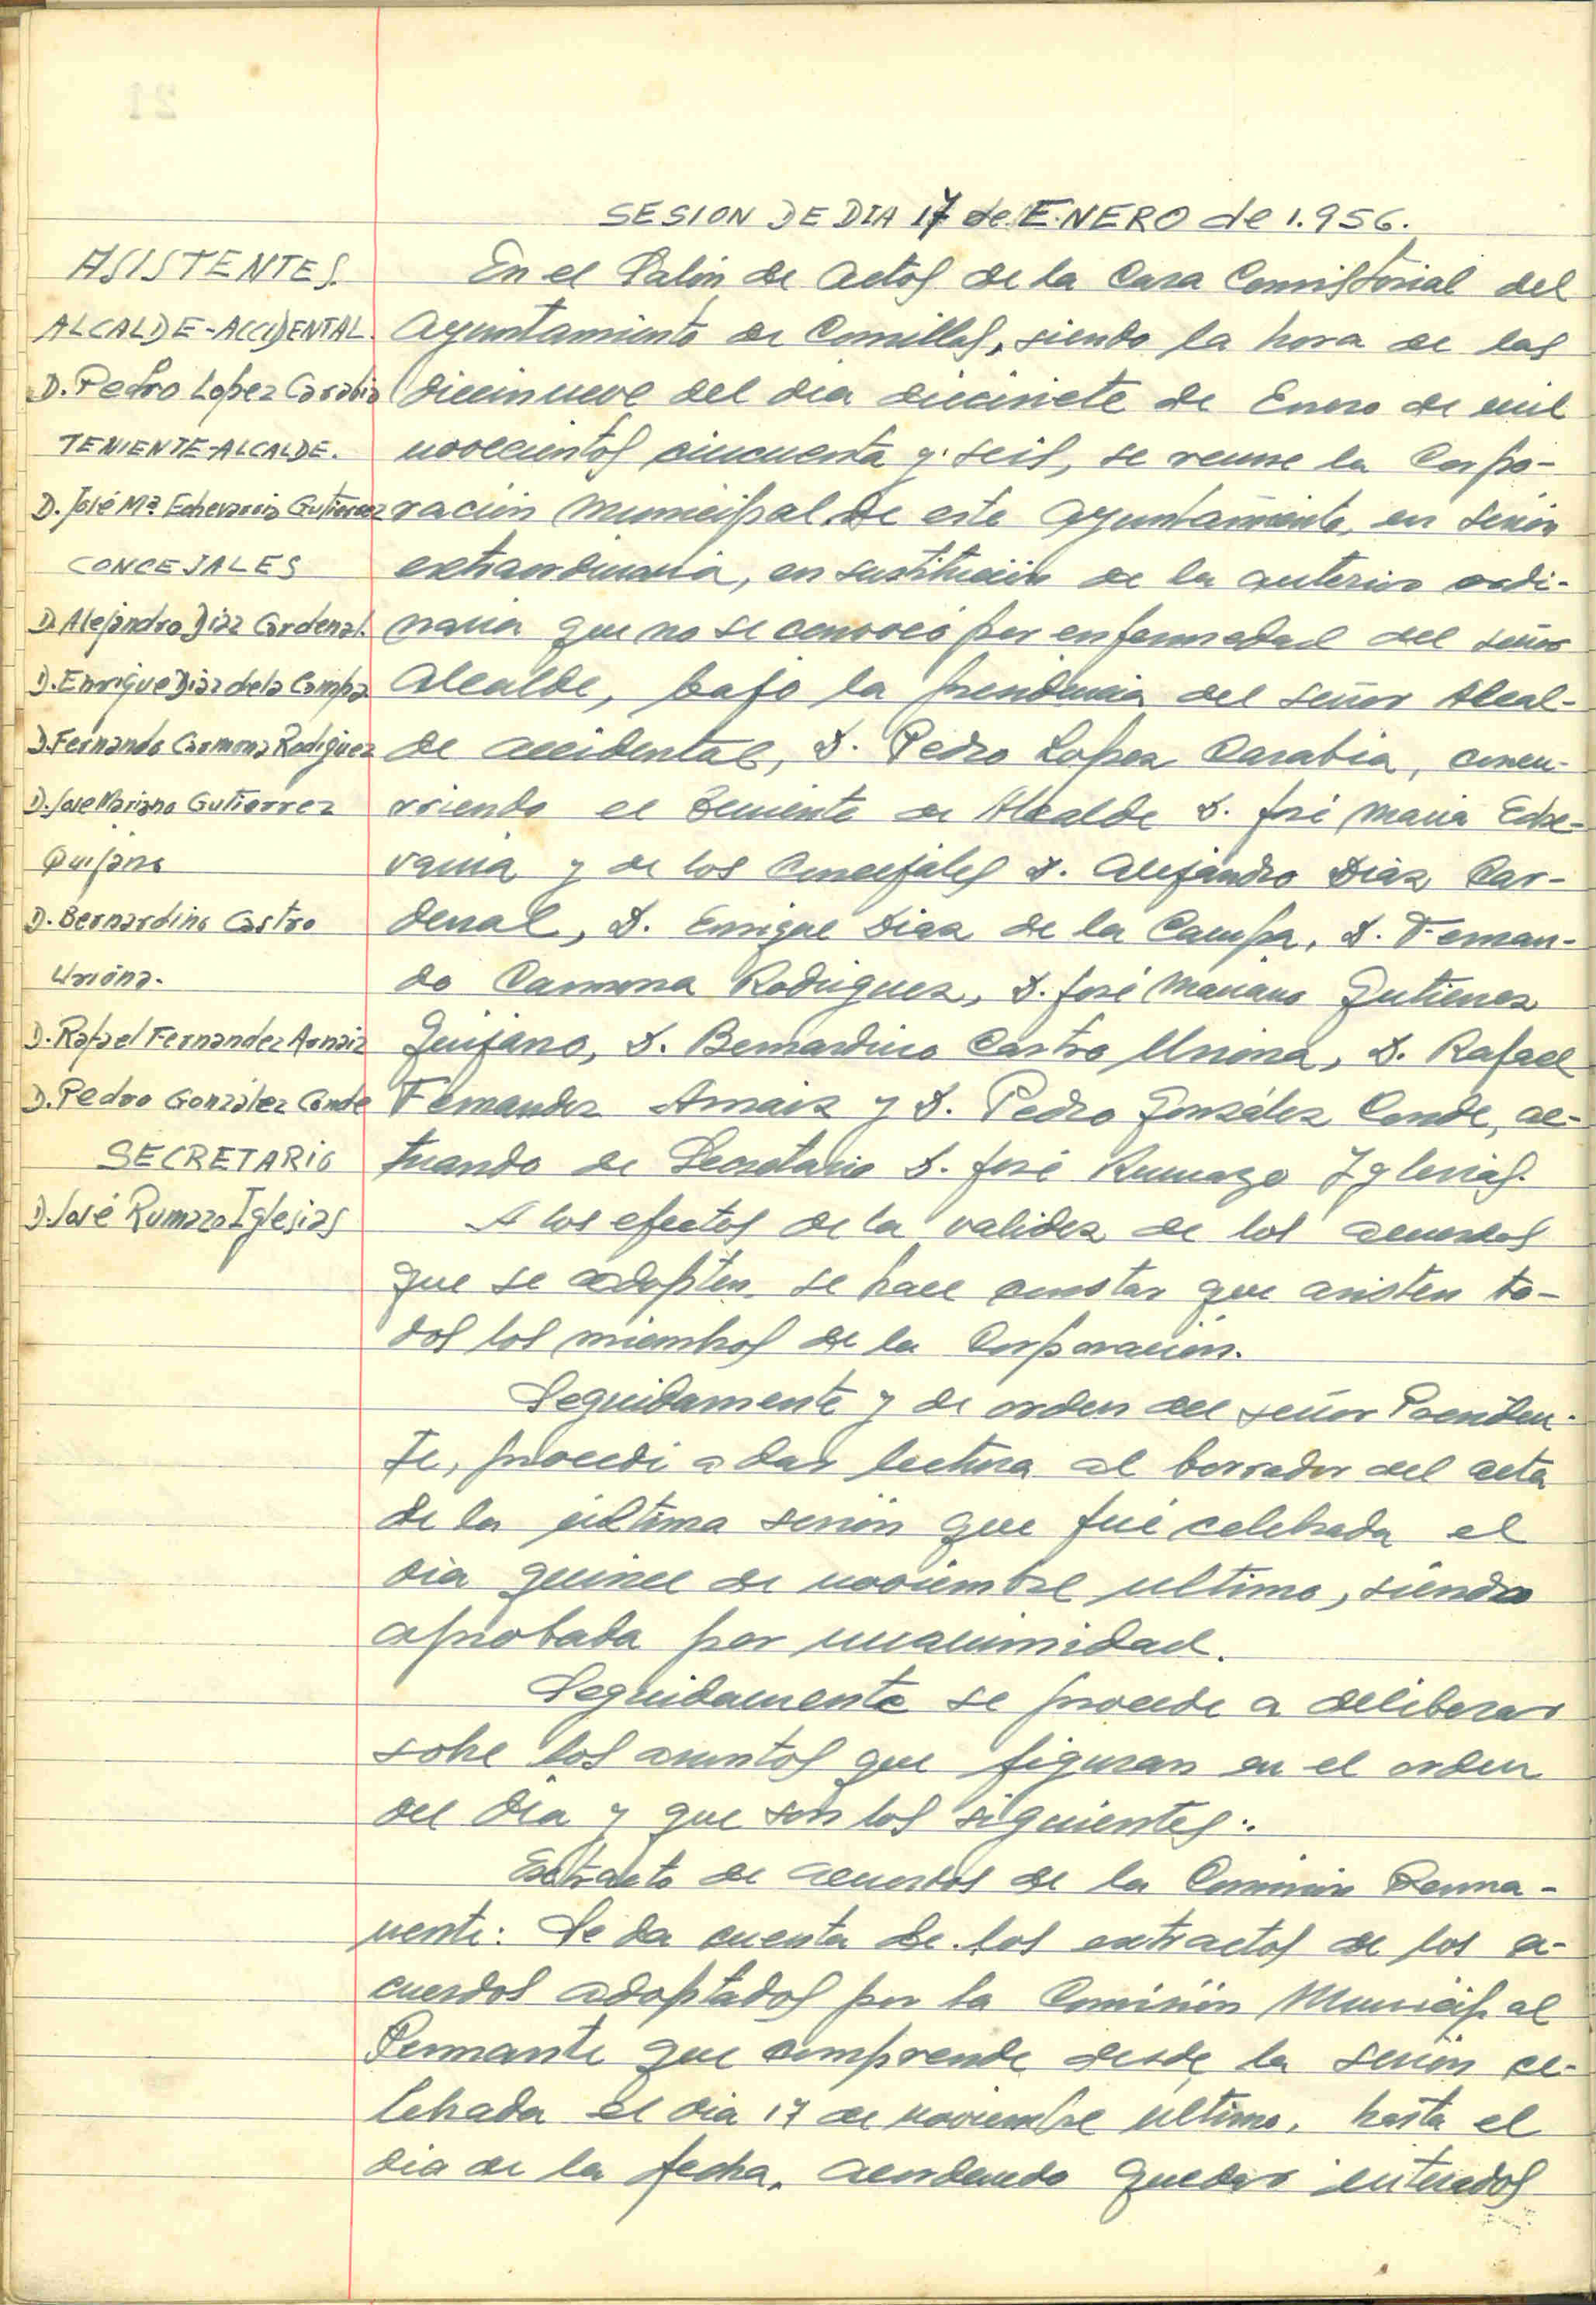 SESION DE DIA 17 de ENERO de 1.956.
ASISTENTES.
ALCALDE-ACCIDENTAL.
D. Pedro Lopez Carabia
TENIENTE-ALCALDE.
D. José Mª Echevarria Gutierrez
CONCEJALES
D. Alejandro Diaz Cardenal.
D. Enrique Diaz de la Campa
D. Fernando Carmona Rodriguez
D. Jose Mariano Gutierrez
Quijano
D. Bernardino Castro
Uriona.
D. Rafael Fernandez Arnaiz
D. Pedro González Conde
SECRETARIO
D. José Rumazo Iglesias
En el Salón de Actos de la Casa Consistorial del
Ayuntamiento de Comillas, siendo la hora de las
diecinueve del dia diecisiete de Enero de mil
novecientos cincuenta y seis, se reune la Corpo-
ración Municipal de este Ayuntamiento, en sesión
extraordinaria, en sustitución de la anterior ordi-
naria que no se convocó por enfermedad del señor
Alcalde, bajo la presidencia del señor Alcal-
de accidental, D. Pedro Lopez Carabia, concu-
rriendo el Teniente de Alcalde D. José Maria Eche-
varria y de los Concejales D. Alejandro Diaz Car-
denal, D. Enrique Diaz de la Campa, D. Fernan-
do Carmona Rodriguez, D. José Mariano Gutierrez
Quijano, D. Bernardino Castro Uriona, D. Rafael
Fernandez Arnaiz y D. Pedro González Conde, ac-
tuando de Secretario D. José Rumazo Iglesias.
A los efectos de la validez de los acuerdos
que se adopten se hace constar que asisten to-
dos los miembros de la Corporación.
Seguidamente y de orden del señor Presiden-
te, procedi a dar lectura al borrador del acta
de la última sesión que fué celebrada el
dia quince de noviembre ultimo, siendo
aprobada por unanimidad.
Seguidamente se procede a deliberar
sobre los asuntos que figuran en el orden
del Dia y que son los siguientes:
Extracto de acuerdos de la Comisión Perma-
nente: Se da cuenta de los extractos de los a-
cuerdos adoptados por la Comisión Municipal
Permante que comprende desde la sesión ce-
lebrada el dia 17 de noviembre ultimo, hasta el
dia de la fecha, acordando quedar enterados